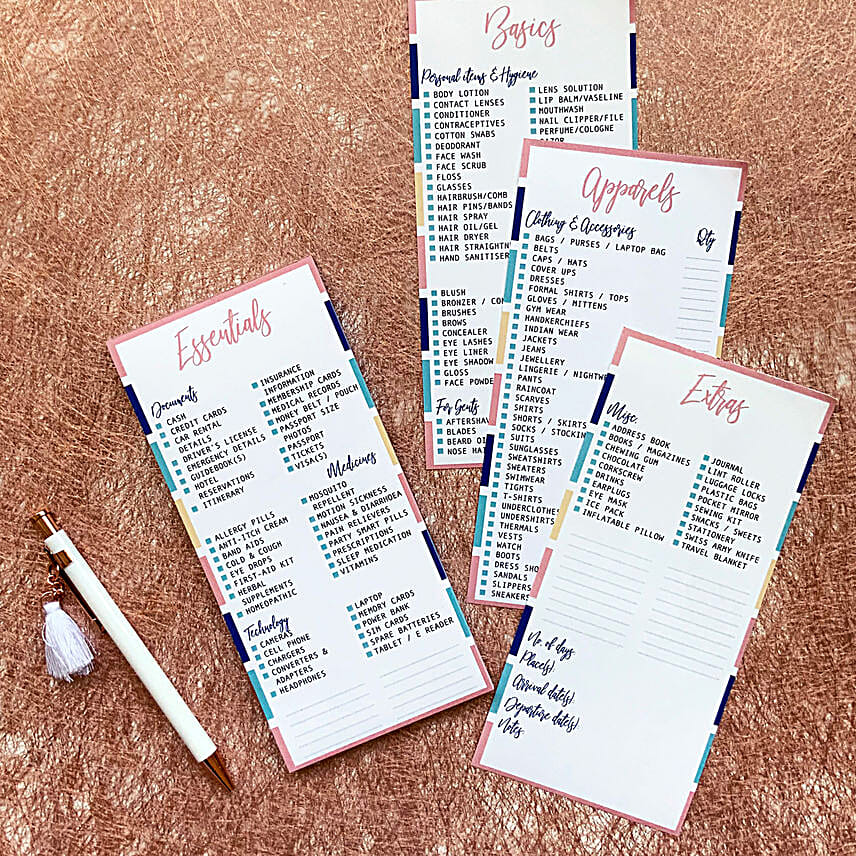 Basics
Personal items & Hygiene
BODY LOTION
CONTACT LENSES
CONDITIONER
CONTRACEPTIVES
COTTON SWABS
DEODORANT
FACE WASH
FACE SCRUB
FLOSS
GLASSES
HAIRBRUSH/COMB
HAIR PINS/BANDS
HAIR SPRAY
HAIR OIL/GEL
HAIR DRYER
HAIR STRAIGHTN
HAND SANITISER
LENS SOLUTION
LIP BALM/VASELINE
MOUTHWASH
NAIL CLIPPER/FILE
PERFUME/COLOGNE
BLUSH
BRONZER / CON
BRUSHES
BROWS
CONCEALER
EYE LASHES
EYE LINER
EYE SHADOW
GLOSS
FACE POWDE
For Gents
AFTERSHAV
BLADES
BEARD OI
NOSE HAI
Apparels
Clothing & Accessories
Qty
BAGS / PURSES / LAPTOP BAG
BELTS
CAPS / HATS
COVER UPS
DRESSES
FORMAL SHIRTS / TOPS
GLOVES / MITTENS
GYM WEAR
HANDKERCHIEFS
INDIAN WEAR
JACKETS
JEANS
JEWELLERY
LINGERIE / NIGHTW
PANTS
RAINCOAT
SCARVES
SHIRTS
SHORTS / SKIRTS
SOCKS / STOCKIN
SUITS
SUNGLASSES
SWEATSHIRTS
SWEATERS
SWIMWEAR
TIGHTS
T-SHIRTS
UNDERCLOTHES
UNDERSHIRTS
THERMALS
VESTS
WATCH
BOOTS
DRESS SHO
SANDALS
SLIPPERS
SNEAKERS
Essentials
Documents
CASH
CREDIT CARDS
CAR RENTAL
DETAILS
DRIVER'S LICENSE
EMERGENCY DETAILS
GUIDEBOOK(S)
HOTEL
RESERVATIONS
ITINERARY
INSURANCE
INFORMATION
MEMBERSHIP CARDS
MEDICAL RECORDS
MONEY BELT / POUCH
PASSPORT SIZE
PHOTOS
PASSPORT
TICKETS
VISA(S)
Medicines
ALLERGY PILLS
ANTI-ITCH CREAM
BAND AIDS
COLD & COUGH
EYE DROPS
FIRST-AID KIT
HERBAL
SUPPLEMENTS
HOMEOPATHIC
MOSQUITO
REPELLENT
MOTION SICKNESS
NAUSEA & DIARRHOEA
PAIN RELIEVERS
PARTY SMART PILLS
PRESCRIPTIONS
SLEEP MEDICATION
VITAMINS
Technology
CAMERAS
CELL PHONE
CHARGERS
CONVERTERS &
ADAPTERS
HEADPHONES
LAPTOP
MEMORY CARDS
POWER BANK
SIM CARDS
SPARE BATTERIES
TABLET / E READER
Extras
Misc.
ADDRESS BOOK
BOOKS / MAGAZINES
CHEWING GUM
CHOCOLATE
CORKSCREW
DRINKS
EARPLUGS
EYE MASK
ICE PACK
INFLATABLE PILLOW
JOURNAL
LINT ROLLER
LUGGAGE LOCKS
PLASTIC BAGS
POCKET MIRROR
SEWING KIT
SNACKS / SWEETS
STATIONERY
SWISS ARMY KNIFE
TRAVEL BLANKET
No. of days:
Place(s):
Arrival date(s):
Departure date(s):
Notes: